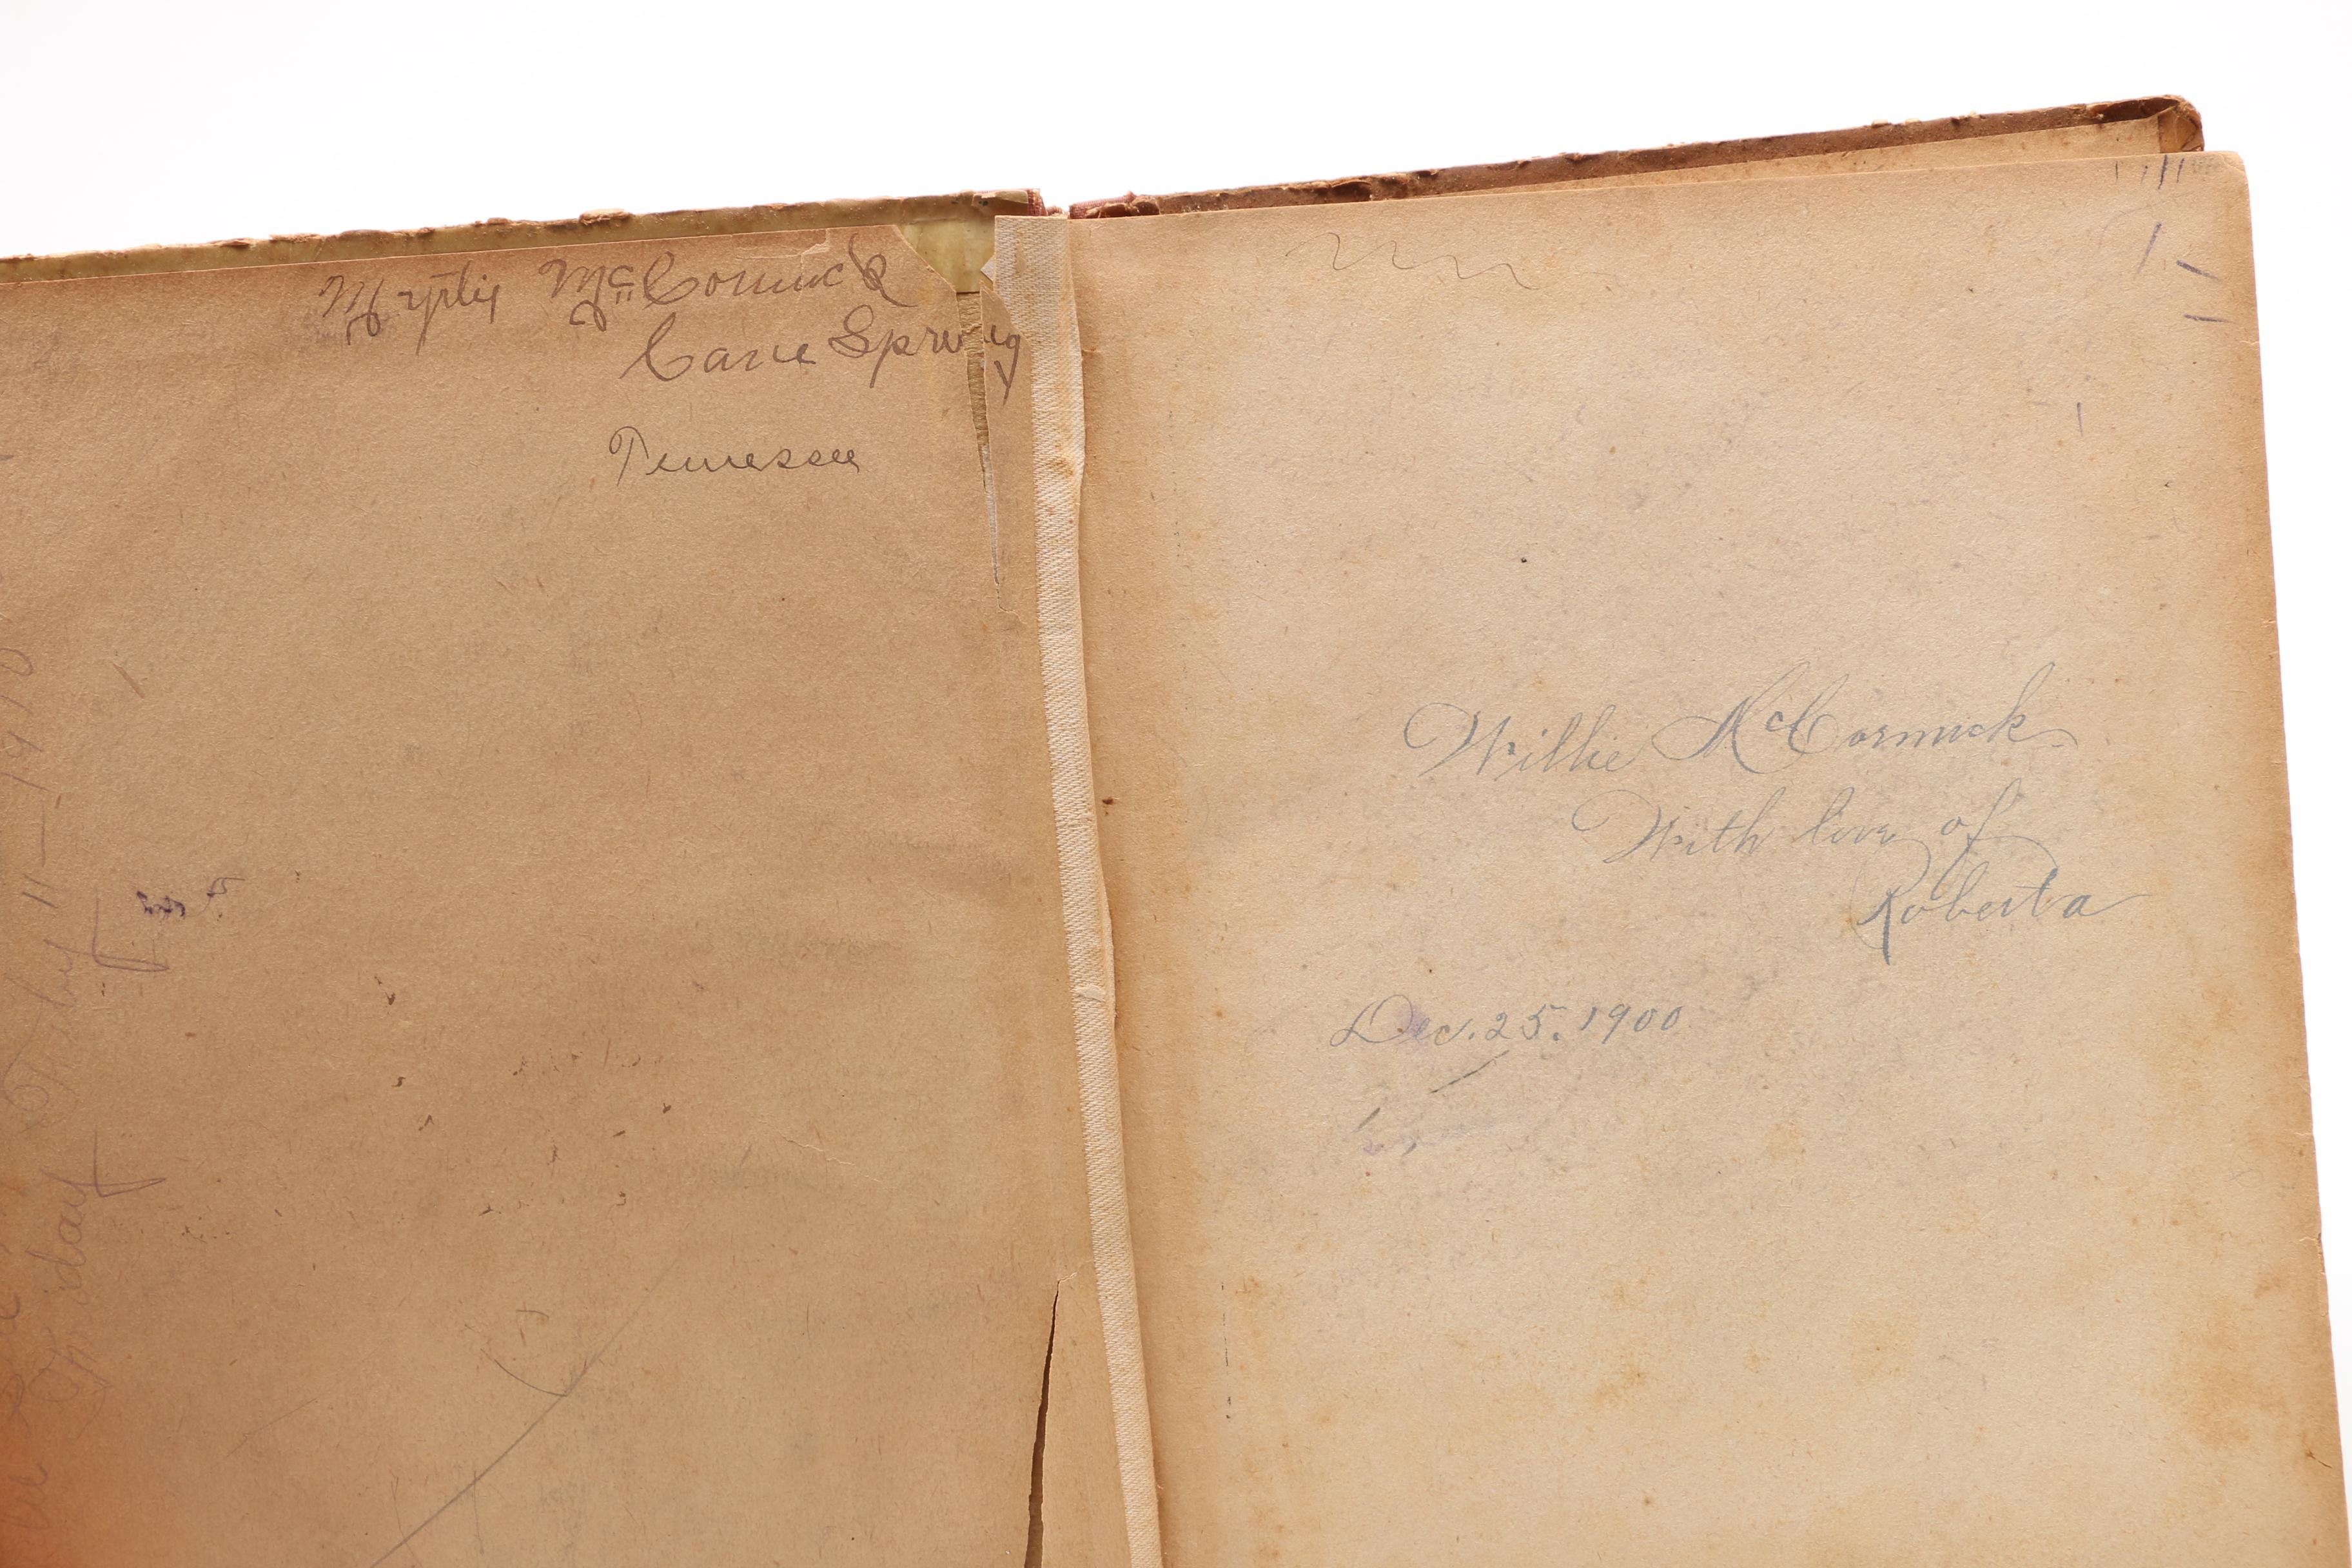 McCormick
Cave Spring
Tennessee
Friday Feby 11—1910
Willie McCormick
With love of
Roberta
Dec. 25. 1900